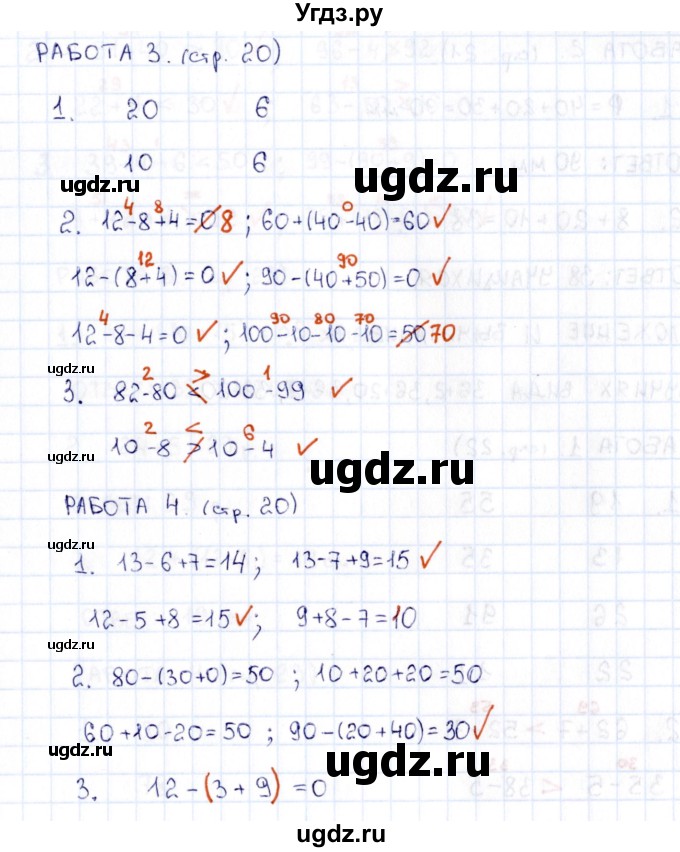 Угдз.ру
РАБОТА 3. (стр. 20)
1. 20 6
10 6
ugdz.ru ugdz.ru
4 8 0
2. 12-8+4=0 8 ; 60+(40-40)=60 ✓
12 90
12-(8+4)=0 ✓ ; 90-(40+50)=0 ✓
ugdz.ru
4 90 80 70
12-8-4=0 ✓ ; 100-10-10-10=50 70
ugdz.ru
2 > 1
3. 82-80 < 100-99 ✓
2 < 6
10-8 > 10-4 ✓
ugdz.ru ugdz.ru
РАБОТА 4. (стр. 20)
ugdz.ru
1. 13-6+7=14; 13-7+9=15 ✓
12-5+8=15 ✓; 9+8-7=10
ugdz.ru
2. 80-(30+0)=50 ; 10+20+20=50
60+10-20=50 ; 90-(20+40)=30 ✓
ugdz.ru
3. 12-(3+9)=0
ugdz.ru
ugdz.ru